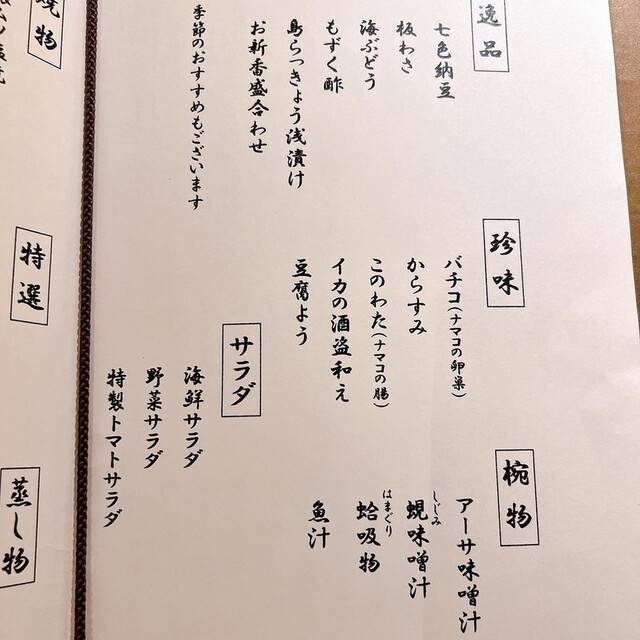 逸品
七色納豆
板わさ
海ぶどう
もずく酢
島らっきょう浅漬け
お新香盛合わせ
季節のおすすめもございます
珍味
バチコ(ナマコの卵巣)
からすみ
このわた(ナマコの腸)
イカの酒盗和え
豆腐よう
サラダ
海鮮サラダ
野菜サラダ
特製トマトサラダ
椀物
アーサ味噌汁
蜆味噌汁
しじみ
蛤吸物
はまぐり
魚汁
焼物
特選
蒸し物